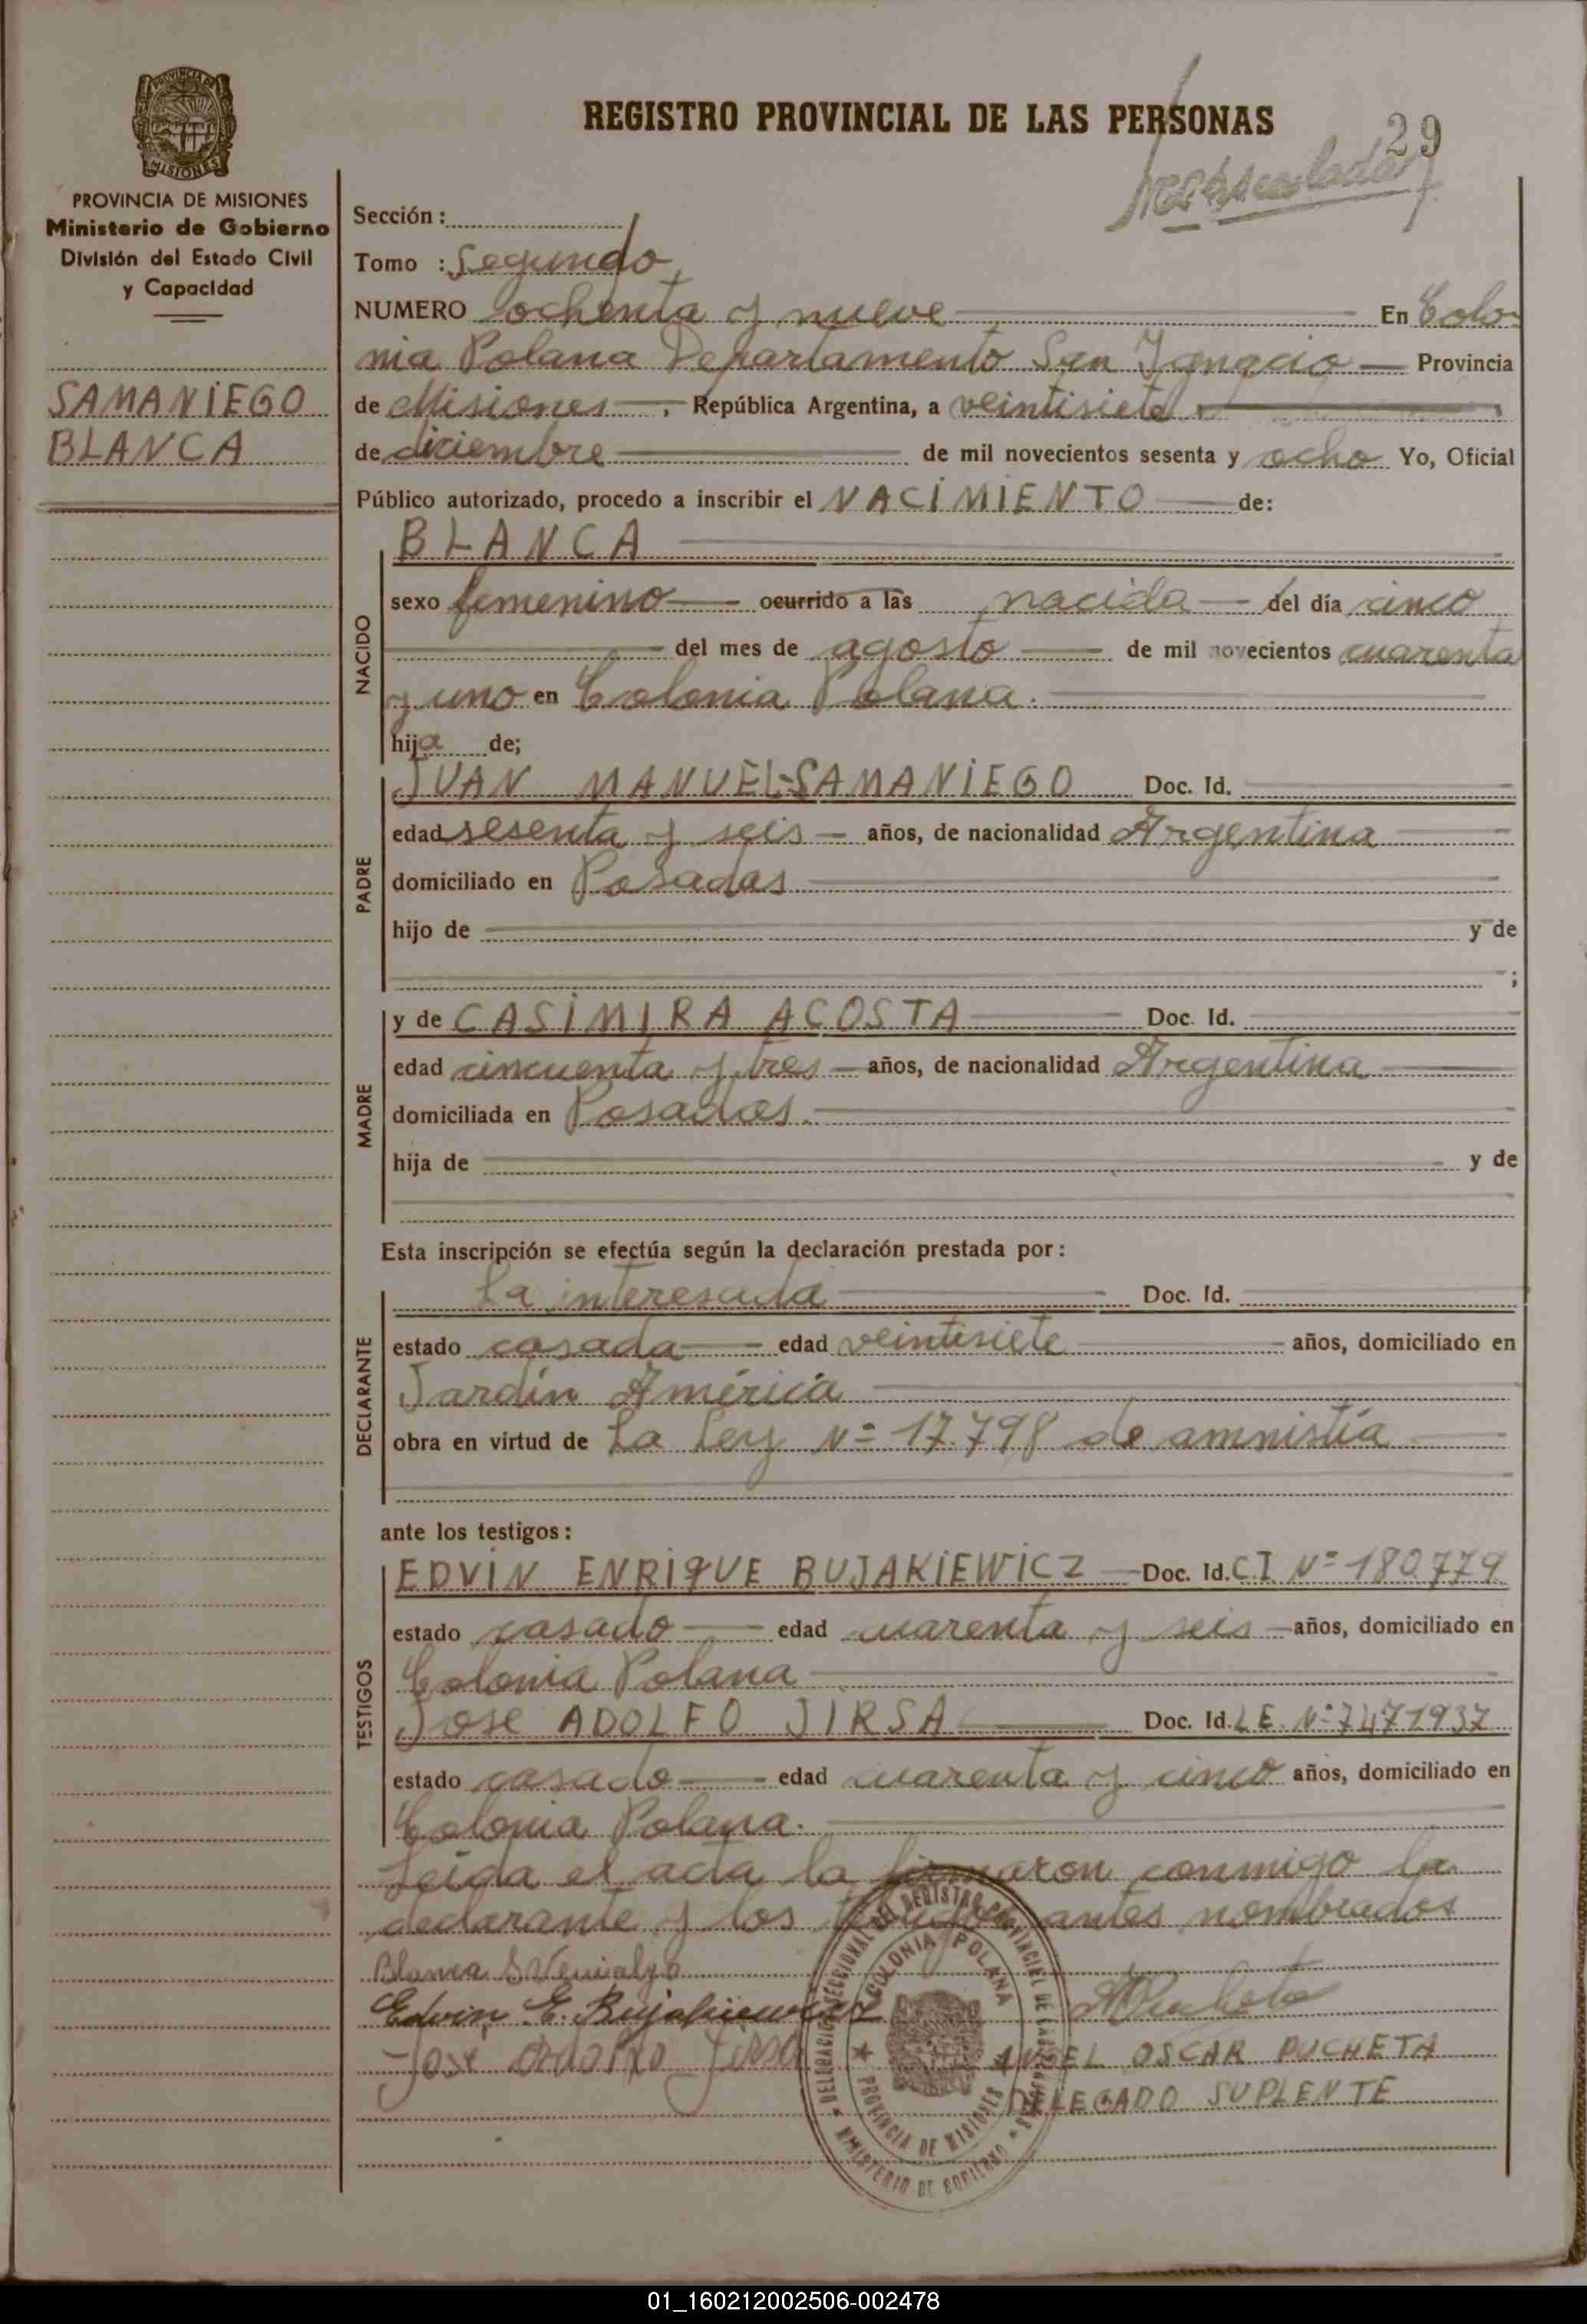 REGISTRO PROVINCIAL DE LAS PERSONAS
29
PROVINCIA DE MISIONES
Ministerio de Gobierno
División del Estado Civil
y Capacidad
SAMANIEGO
BLANCA
Sección:
Tomo : Segundo
NUMERO ochenta y nueve En Colo-
nia Polana Departamento San Ignacio Provincia
de Misiones, República Argentina, a veintisiete
de diciembre de mil novecientos sesenta y ocho Yo, Oficial
Público autorizado, procedo a inscribir el NACIMIENTO de:
NACIDO
BLANCA
sexo femenino ocurrido a las nacida del día cinco
del mes de agosto de mil novecientos cuarenta
y uno en Colonia Polana.
hija de;
PADRE
JUAN MANUEL SAMANIEGO Doc. Id.
edad sesenta y seis años, de nacionalidad Argentina
domiciliado en Posadas
hijo de y de
;
MADRE
y de CASIMIRA ACOSTA Doc. Id.
edad cincuenta y tres años, de nacionalidad Argentina
domiciliada en Posadas.
hija de y de
Esta inscripción se efectúa según la declaración prestada por:
DECLARANTE
La interesada Doc. Id.
estado casada edad veintisiete años, domiciliado en
Jardín América
obra en virtud de La Ley Nº 17.798 de amnistía
ante los testigos:
TESTIGOS
EDVIN ENRIQUE BUJAKIEWICZ Doc. Id. C.I Nº 180.779
estado casado edad cuarenta y seis años, domiciliado en
Colonia Polana
JOSE ADOLFO JIRSA Doc. Id. L.E. Nº 7471937
estado casado edad cuarenta y cinco años, domiciliado en
Colonia Polana.
Leida el acta la firmaron conmigo la
declarante y los testigos antes nombrados
Blanca S Venialgo
Edvin E. Bujakiewicz
José Adolfo Jirsa
ANGEL OSCAR PUCHETA
DELEGADO SUPLENTE
COLONIA POLANA
PROVINCIA DE MISIONES
MINISTERIO DE GOBIERNO
01_160212002506-002478